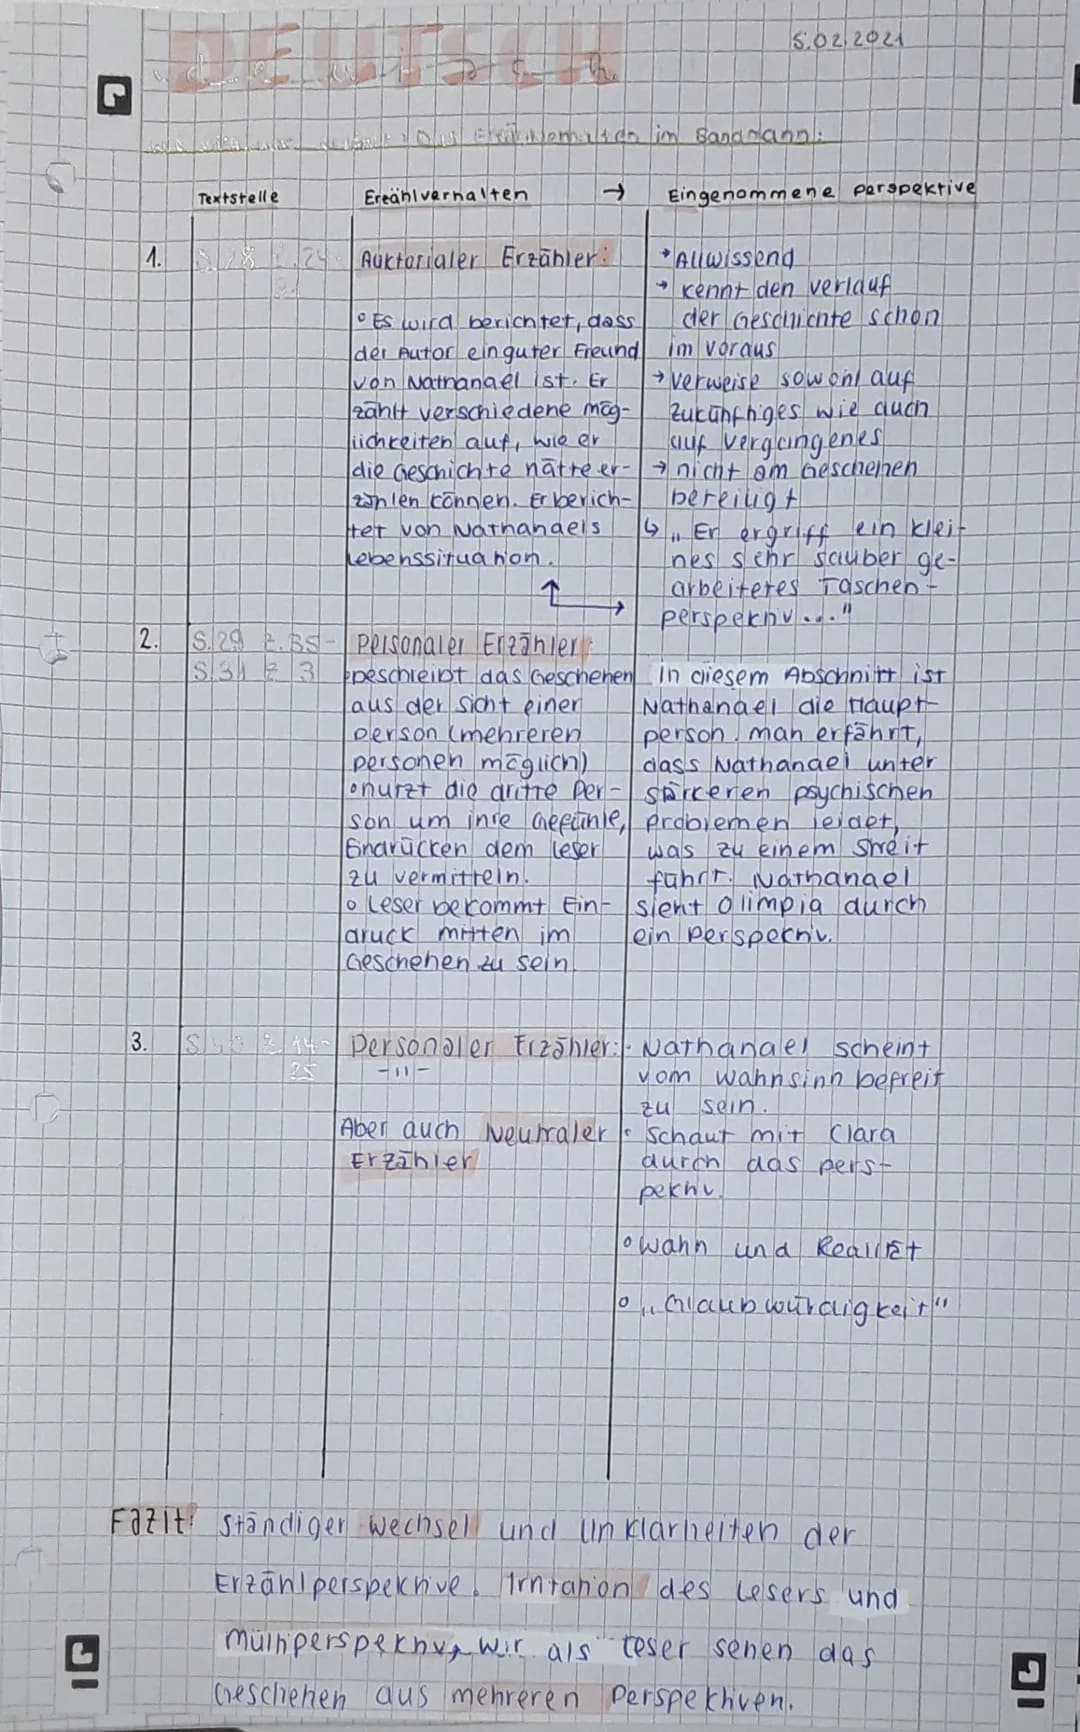 DEUTSCH
5.02.2021
im Sandmann:
Textstelle Erzählverhalten → Eingenommene perspektive
1. Auktorialer Erzähler:
° Es wird berichtet, dass
der Autor ein guter Freund
von Nathanael ist. Er
zählt verschiedene mög-
lichkeiten auf, wie er
die Geschichte hätte er-
zählen können. Er berich-
tet von Nathanaels
Lebenssituation.
→ Allwissend
→ kennt den verlauf
der Geschichte schon
im voraus
→ verweise sowohl auf
zukünftiges wie auch
auf vergangenes
→ nicht am Geschehen
beteiligt
↳ „Er ergriff ein klei-
nes sehr sauber ge-
arbeitetes Taschen-
perspektiv..."
2. S.29 Z.35-
S.31 Z 3
Personaler Erzähler:
beschreibt das Geschehen
aus der Sicht einer
person (mehreren
personen möglich)
° nutzt die dritte Per-
son um ihre Gefühle,
Eindrücken dem leser
zu vermitteln.
° Leser bekommt Ein-
druck mitten im
Geschehen zu sein.
In diesem Abschnitt ist
Nathanael die Haupt-
person. man erfährt,
dass Nathanael unter
stärkeren psychischen
problemen leidet,
was zu einem Streit
führt. Nathanael
sieht Olimpia durch
ein perspektiv.
3. Personaler Erzähler:
-11-
Aber auch Neutraler
Erzähler
• Nathanael scheint
vom wahnsinn befreit
zu sein.
• Schaut mit Clara
durch das pers-
pektiv.
° Wahn und Realität
° „Glaubwürdigkeit"
Fazit: ständiger Wechsel und Unklarheiten der
Erzählperspektive. Irritation des Lesers und
multiperspektiv, wir als Leser sehen das
Geschehen aus mehreren Perspektiven.